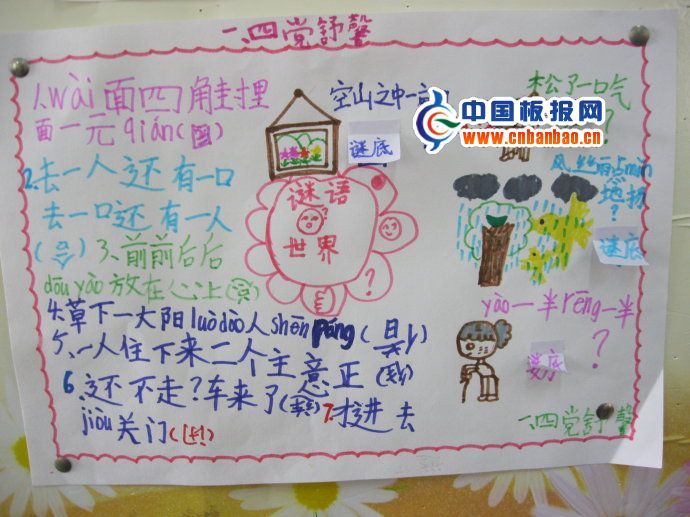 一、四党舒馨
1.wài面四角封埋
面一元qián(圆)
空山之中一
谜底
松了一口气
?
中国板报网
www.cnbanbao.cn
2.去一人还有一口
去一口还有一人
谜语
世界
?
谜底
?
3、前前后后
dōu yào放在心上
4.草下一大阳luò dào人shēn páng(
5、一人住下来二个主意正
6、还不走?车来了
7.才进去
jiòu关门
yào一半rēng一半
?
一、四党舒馨